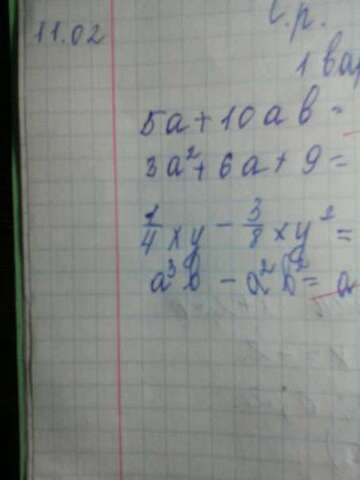 11.02
с.р.
1 вар
5a + 10ab =
3a² + 6a + 9 =
1/4 xy - 3/8 xy² =
a³b - a²b² = a